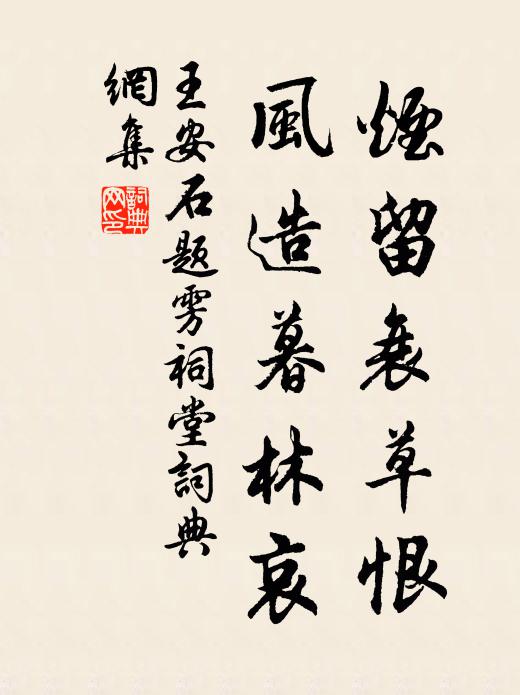 煙留衰草恨
風造暮林哀
王安石題雱祠堂詞典
網集
詞典
网印